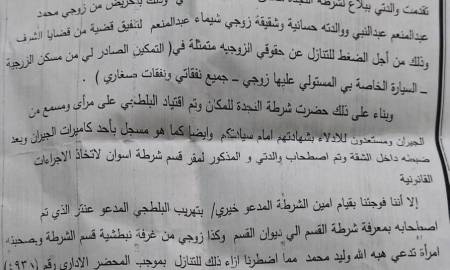 تقدمت والدتي ببلاغ لشرطة النجدة وذلك بتحريض من زوجي محمد
عبدالمنعم عبدالنبي ووالدته حسانية وشقيقة زوجي شيماء عبدالمنعم لتلفيق قضية من قضايا الشرف
وذلك من اجل الضغط للتنازل عن حقوقي الزوجيه متمثلة في( التمكين الصادر لي من مسكن الزوجية
– السيارة الخاصة بي المستولي عليها زوجي – جميع نفقاتي ونفقات صغاري ) .
وبناء على ذلك حضرت شرطة النجدة للمكان وتم اقتياد البلطجي على مرأى ومسمع من
الجيران ومستعدون للادلاء بشهادتهم امام سيادتكم وايضا كما هو مسجل بأحد كاميرات الجيران وبعد
ضبطه داخل الشقة وتم اصطحاب والدتي و المذكور لمقر قسم شرطة اسوان لاتخاذ الاجراءات
القانونية
إلا أننا فوجئنا بقيام امين الشرطة المدعو خيري/ بتهريب البلطجي المدعو عنتر الذي تم
اصطحابه بمعرفة شرطة القسم الي ديوان القسم وكذا زوجي من غرفة نبطشية قسم الشرطة وبصحبته
امرأة تدعي هبه الله وليد محمد مما اضطرنا ازاء ذلك للتنازل بموجب المحضر الاداري رقم (٤٩٣١